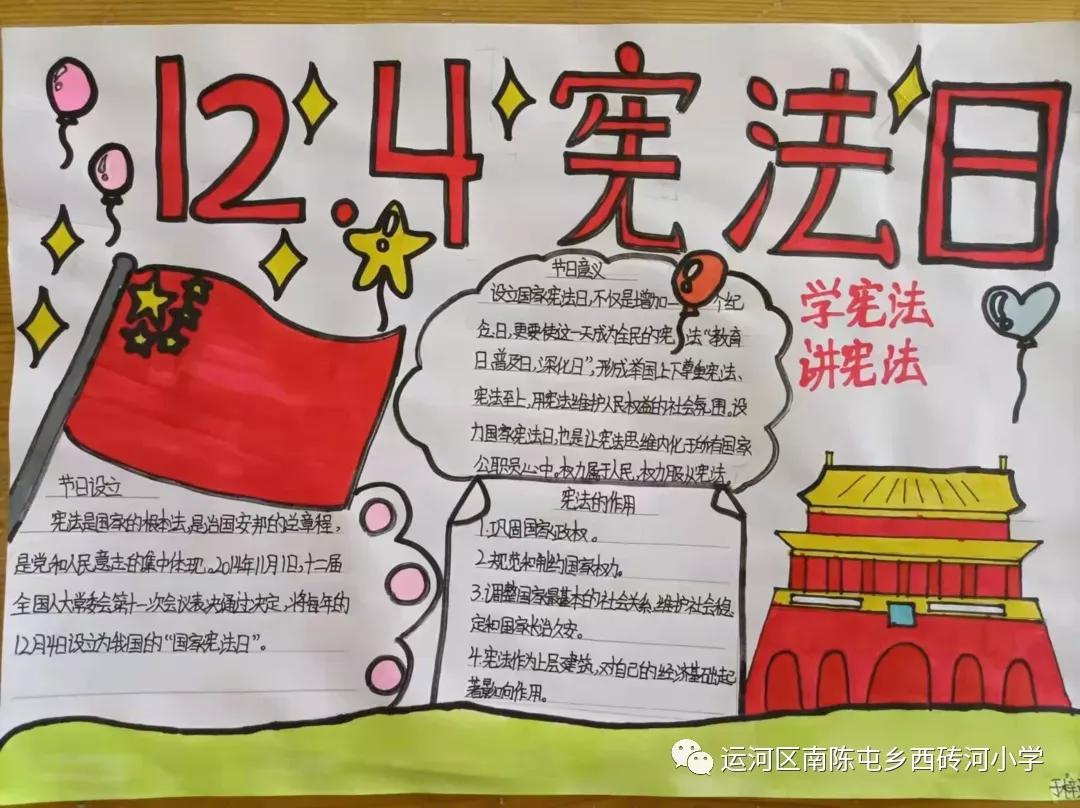 12.4宪法日
学宪法
讲宪法
节日设立
宪法是国家的根本法,是治国安邦的总章程,
是党和人民意志的集中体现。2014年11月1日,十二届
全国人大常委会第十一次会议表决通过决定,将每年的
12月4日设立为我国的“国家宪法日”。
节日意义
设立国家宪法日,不仅是增加一个纪
念日,更要使这一天成为全民的宪法“教育
日、普及日、深化日”,形成举国上下尊重宪法、
宪法至上,用宪法维护人民权益的社会氛围。设
力国家宪法日,也是让宪法思维内化于所有国家
公职员心中。权力属于人民,权力服从宪法。
宪法的作用
1.巩固国家政权。
2.规范和制约国家权力。
3.调整国家最基本的社会关系,维护社会稳
定和国家长治久安。
4.宪法作为上层建筑,对自己的经济基础起
著影响作用。
运河区南陈屯乡西砖河小学